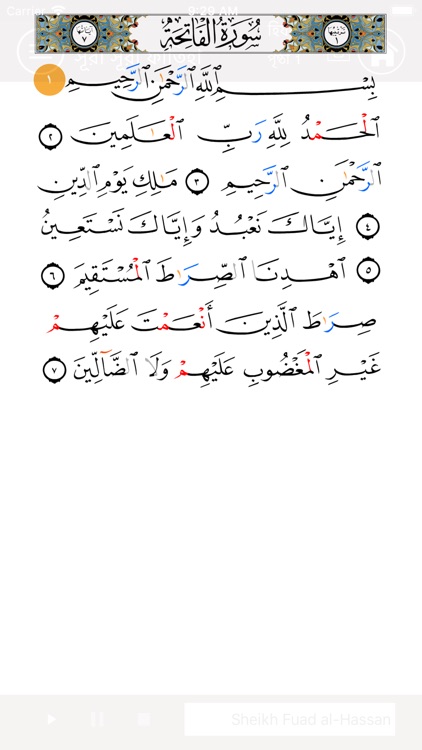 Carrier 9:20 AM
سُورَةُ الْفَاتِحَةِ
بِسْمِ ٱللَّهِ ٱلرَّحْمَٰنِ ٱلرَّحِيمِ ١
ٱلْحَمْدُ لِلَّهِ رَبِّ ٱلْعَٰلَمِينَ ٢
ٱلرَّحْمَٰنِ ٱلرَّحِيمِ ٣ مَٰلِكِ يَوْمِ ٱلدِّينِ
٤ إِيَّاكَ نَعْبُدُ وَإِيَّاكَ نَسْتَعِينُ
٥ ٱهْدِنَا ٱلصِّرَٰطَ ٱلْمُسْتَقِيمَ ٦
صِرَٰطَ ٱلَّذِينَ أَنْعَمْتَ عَلَيْهِمْ
غَيْرِ ٱلْمَغْضُوبِ عَلَيْهِمْ وَلَا ٱلضَّآلِّينَ ٧
Sheikh Fuad al-Hassan